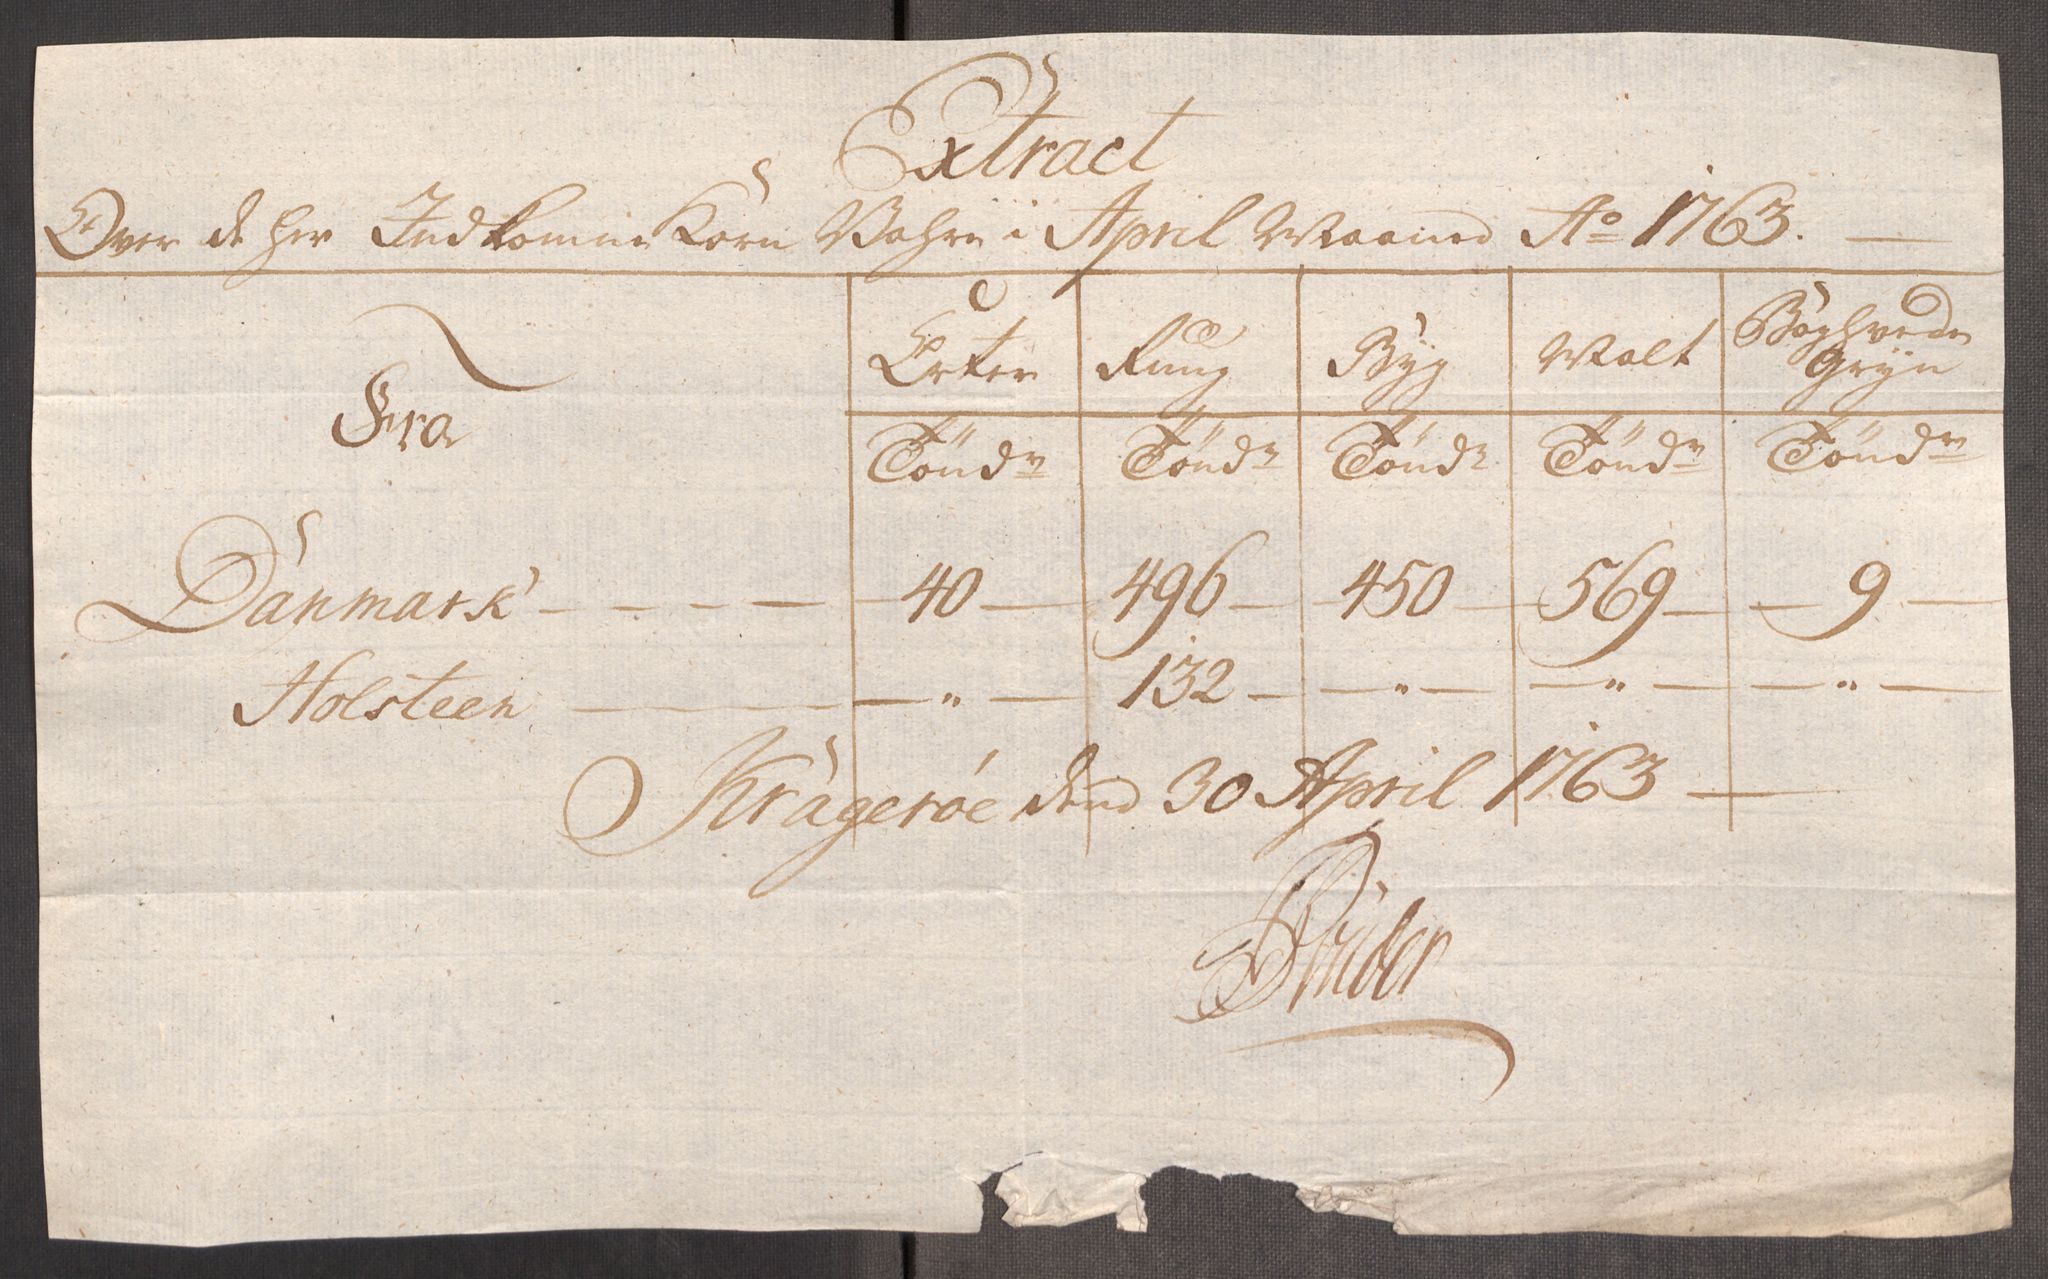 Extract
Over de her Indkomne Korn Vahre i April Maaned Ao 1763.
Fra
Erter Rüug Byg Malt Boghvede
Gryn
Töndr Töndr Töndr Töndr Töndr
Danmark 40 496 450 569 9
Holsteen " 132 " " "
Kragerøe dend 30 April 1763